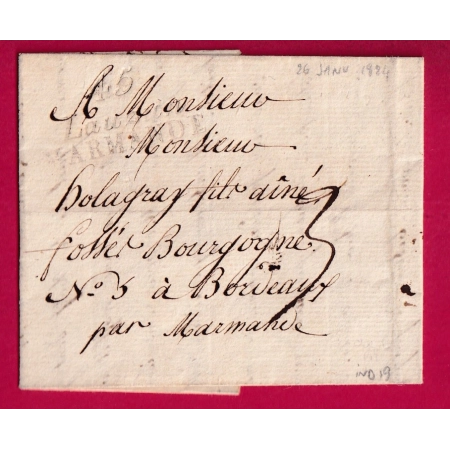 26 JANV 1824
45
Lauzun
MARMANDE
A Monsieur
Monsieur
holagray fils aîné
fossés Bourgogne
N.o 5 à Bordeaux
par Marmande
3
IND 19